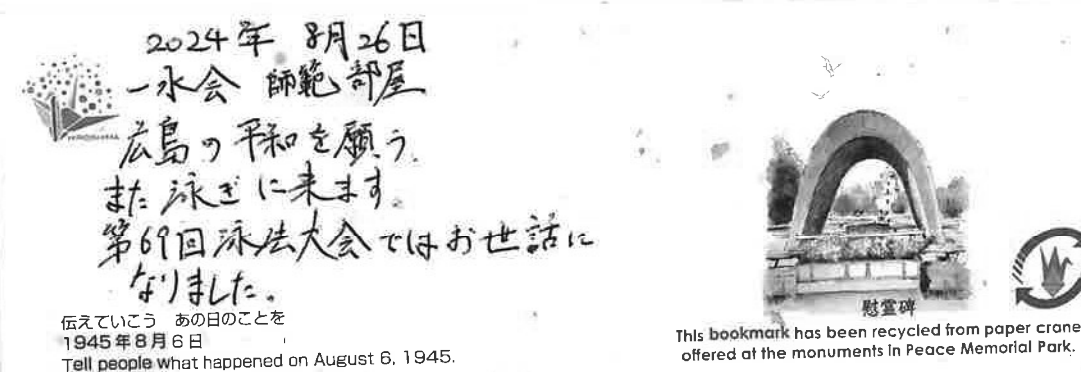 2024年 8月26日
一水会 師範部屋
HIROSHIMA
広島の平和を願う。
また泳ぎに来ます。
第69回泳法大会ではお世話に
なりました。
伝えていこう あの日のことを
1945年8月6日
Tell people what happened on August 6, 1945.
慰霊碑
This bookmark has been recycled from paper crane
offered at the monuments in Peace Memorial Park.